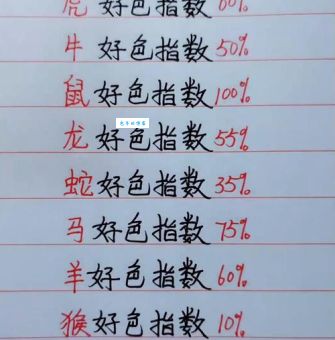 虎好色指数60%
牛好色指数50%
鼠好色指数100%
龙好色指数55%
蛇好色指数35%
马好色指数75%
羊好色指数60%
猴好色指数10%